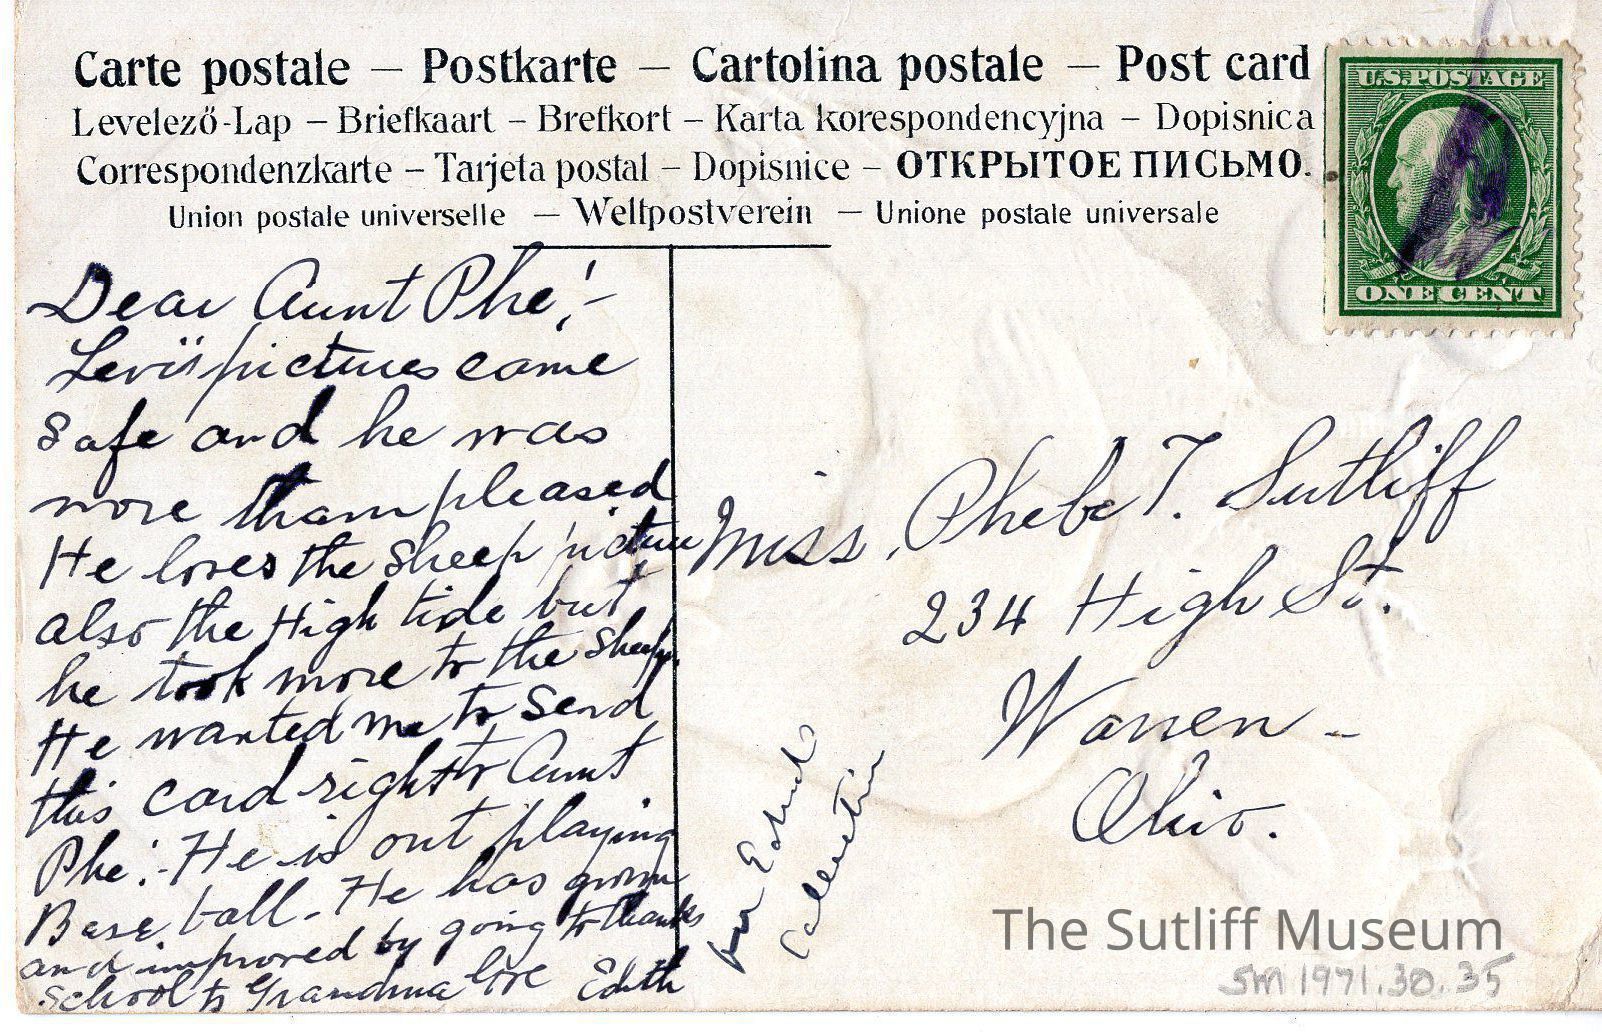 Carte postale — Postkarte — Cartolina postale — Post card
Levelező-Lap — Briefkaart — Brefkort — Karta korespondencyjna — Dopisnica
Correspondenzkarte — Tarjeta postal — Dopisnice — ОТКРЫТОЕ ПИСЬМО.
Union postale universelle — Weltpostverein — Unione postale universale
U.S. POSTAGE
ONE CENT
Dear Aunt Phe!-
Levi's pictures came
safe and he was
more than pleased
He loves the sheep picture
also the High tide but
he took more to the sheep.
He wanted me to send
this card right to Aunt
Phe!- He is out playing
Base ball - He has grown
and improved by going to
school to Grandma love Edith
thanks
for Edith's
collection
Miss. Phebe T. Sutliff
234 High St.
Warren -
Ohio.
The Sutliff Museum
SM 1971.30.35